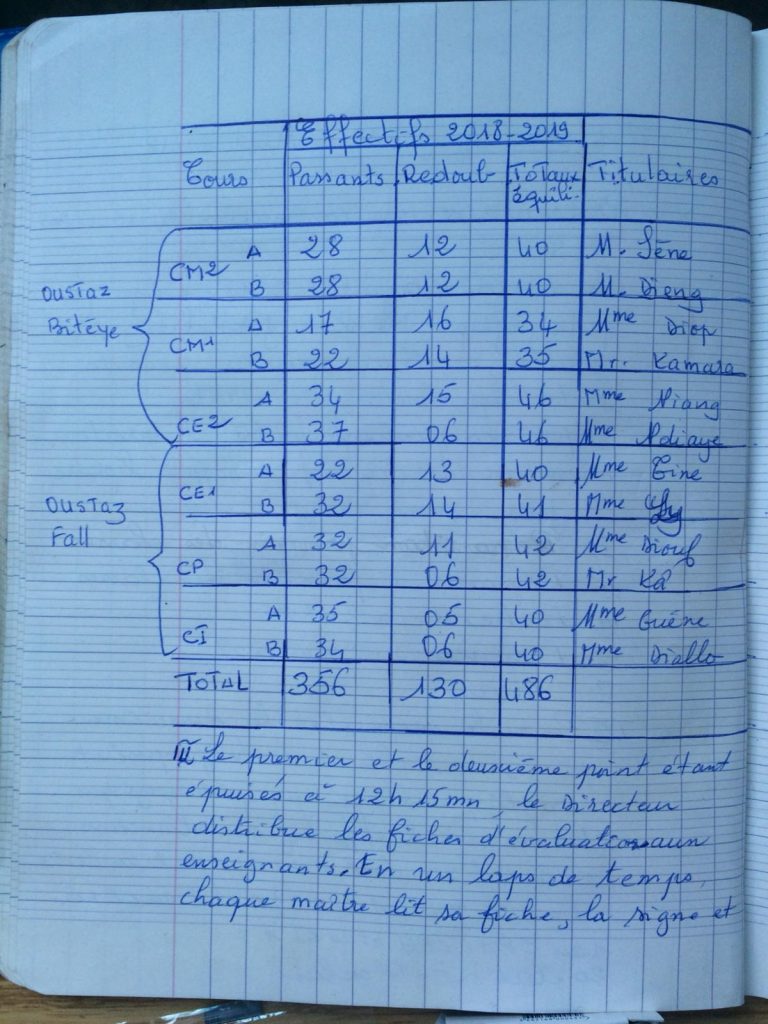 Effectifs 2018-2019
Cours Passants Redoub- Totaux équili- Titulaires
Oustaz Bitéye
CM2 A 28 12 40 M. Sène
B 28 12 40 M. Dieng
CM1 A 17 16 34 Mme Diop
B 22 14 35 Mr. Kamara
CE2 A 34 15 46 Mme Niang
B 37 06 46 Mme Ndiaye
Oustaz Fall
CE1 A 22 13 40 Mme Tine
B 32 14 41 Mme Ly
CP A 32 11 42 Mme Diouf
B 32 06 42 Mr Kâ
CI A 35 05 40 Mme Guène
B 34 06 40 Mme Diallo
TOTAL 356 130 486
III Le premier et le deuxième point étant
épuisés à 12h 15mn, le Directeur
distribue les fiches d'évaluation aux
enseignants. En un laps de temps,
chaque maître lit sa fiche, la signe et